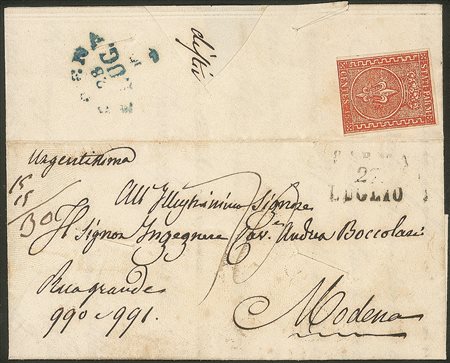 28
STATI PARM.
CENTES. 15
27
LUGLIO
Urgentissima
15
15
30
All' Illustrissimo Signore
Il Signor Ingegnere Cav. Andrea Boccolari
Rua grande
990 e 991.
Modena